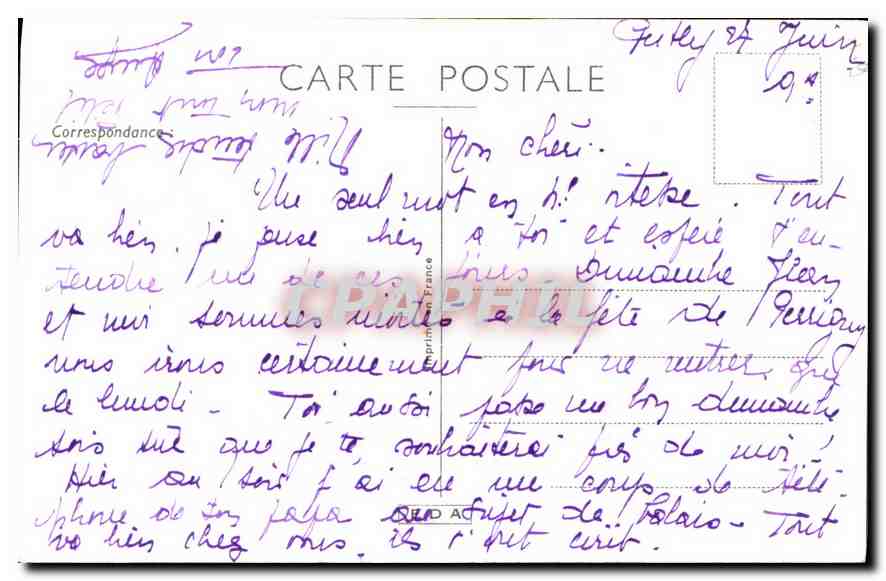 27 Juin
CARTE POSTALE
Correspondance :
Mon chéri.
Un seul mot en vitesse. Tout
va bien. je pense bien a toi et espère t'en-
tendre un de ces jours Dimanche Jean
et moi sommes invités a la fête de
nous irons certainement pour ne rentrer que
le lundi - Toi aussi passe un bon dimanche
sois sûr que je te souhaiterai près de moi !
Hier au soir j'ai eu un coup de télé-
phone de ton papa au sujet de Tout
va bien chez nous. ils t'ont écrit.
Mille tendres baisers
mon tout petit
ton
Imprimé en France
CPAPHIL